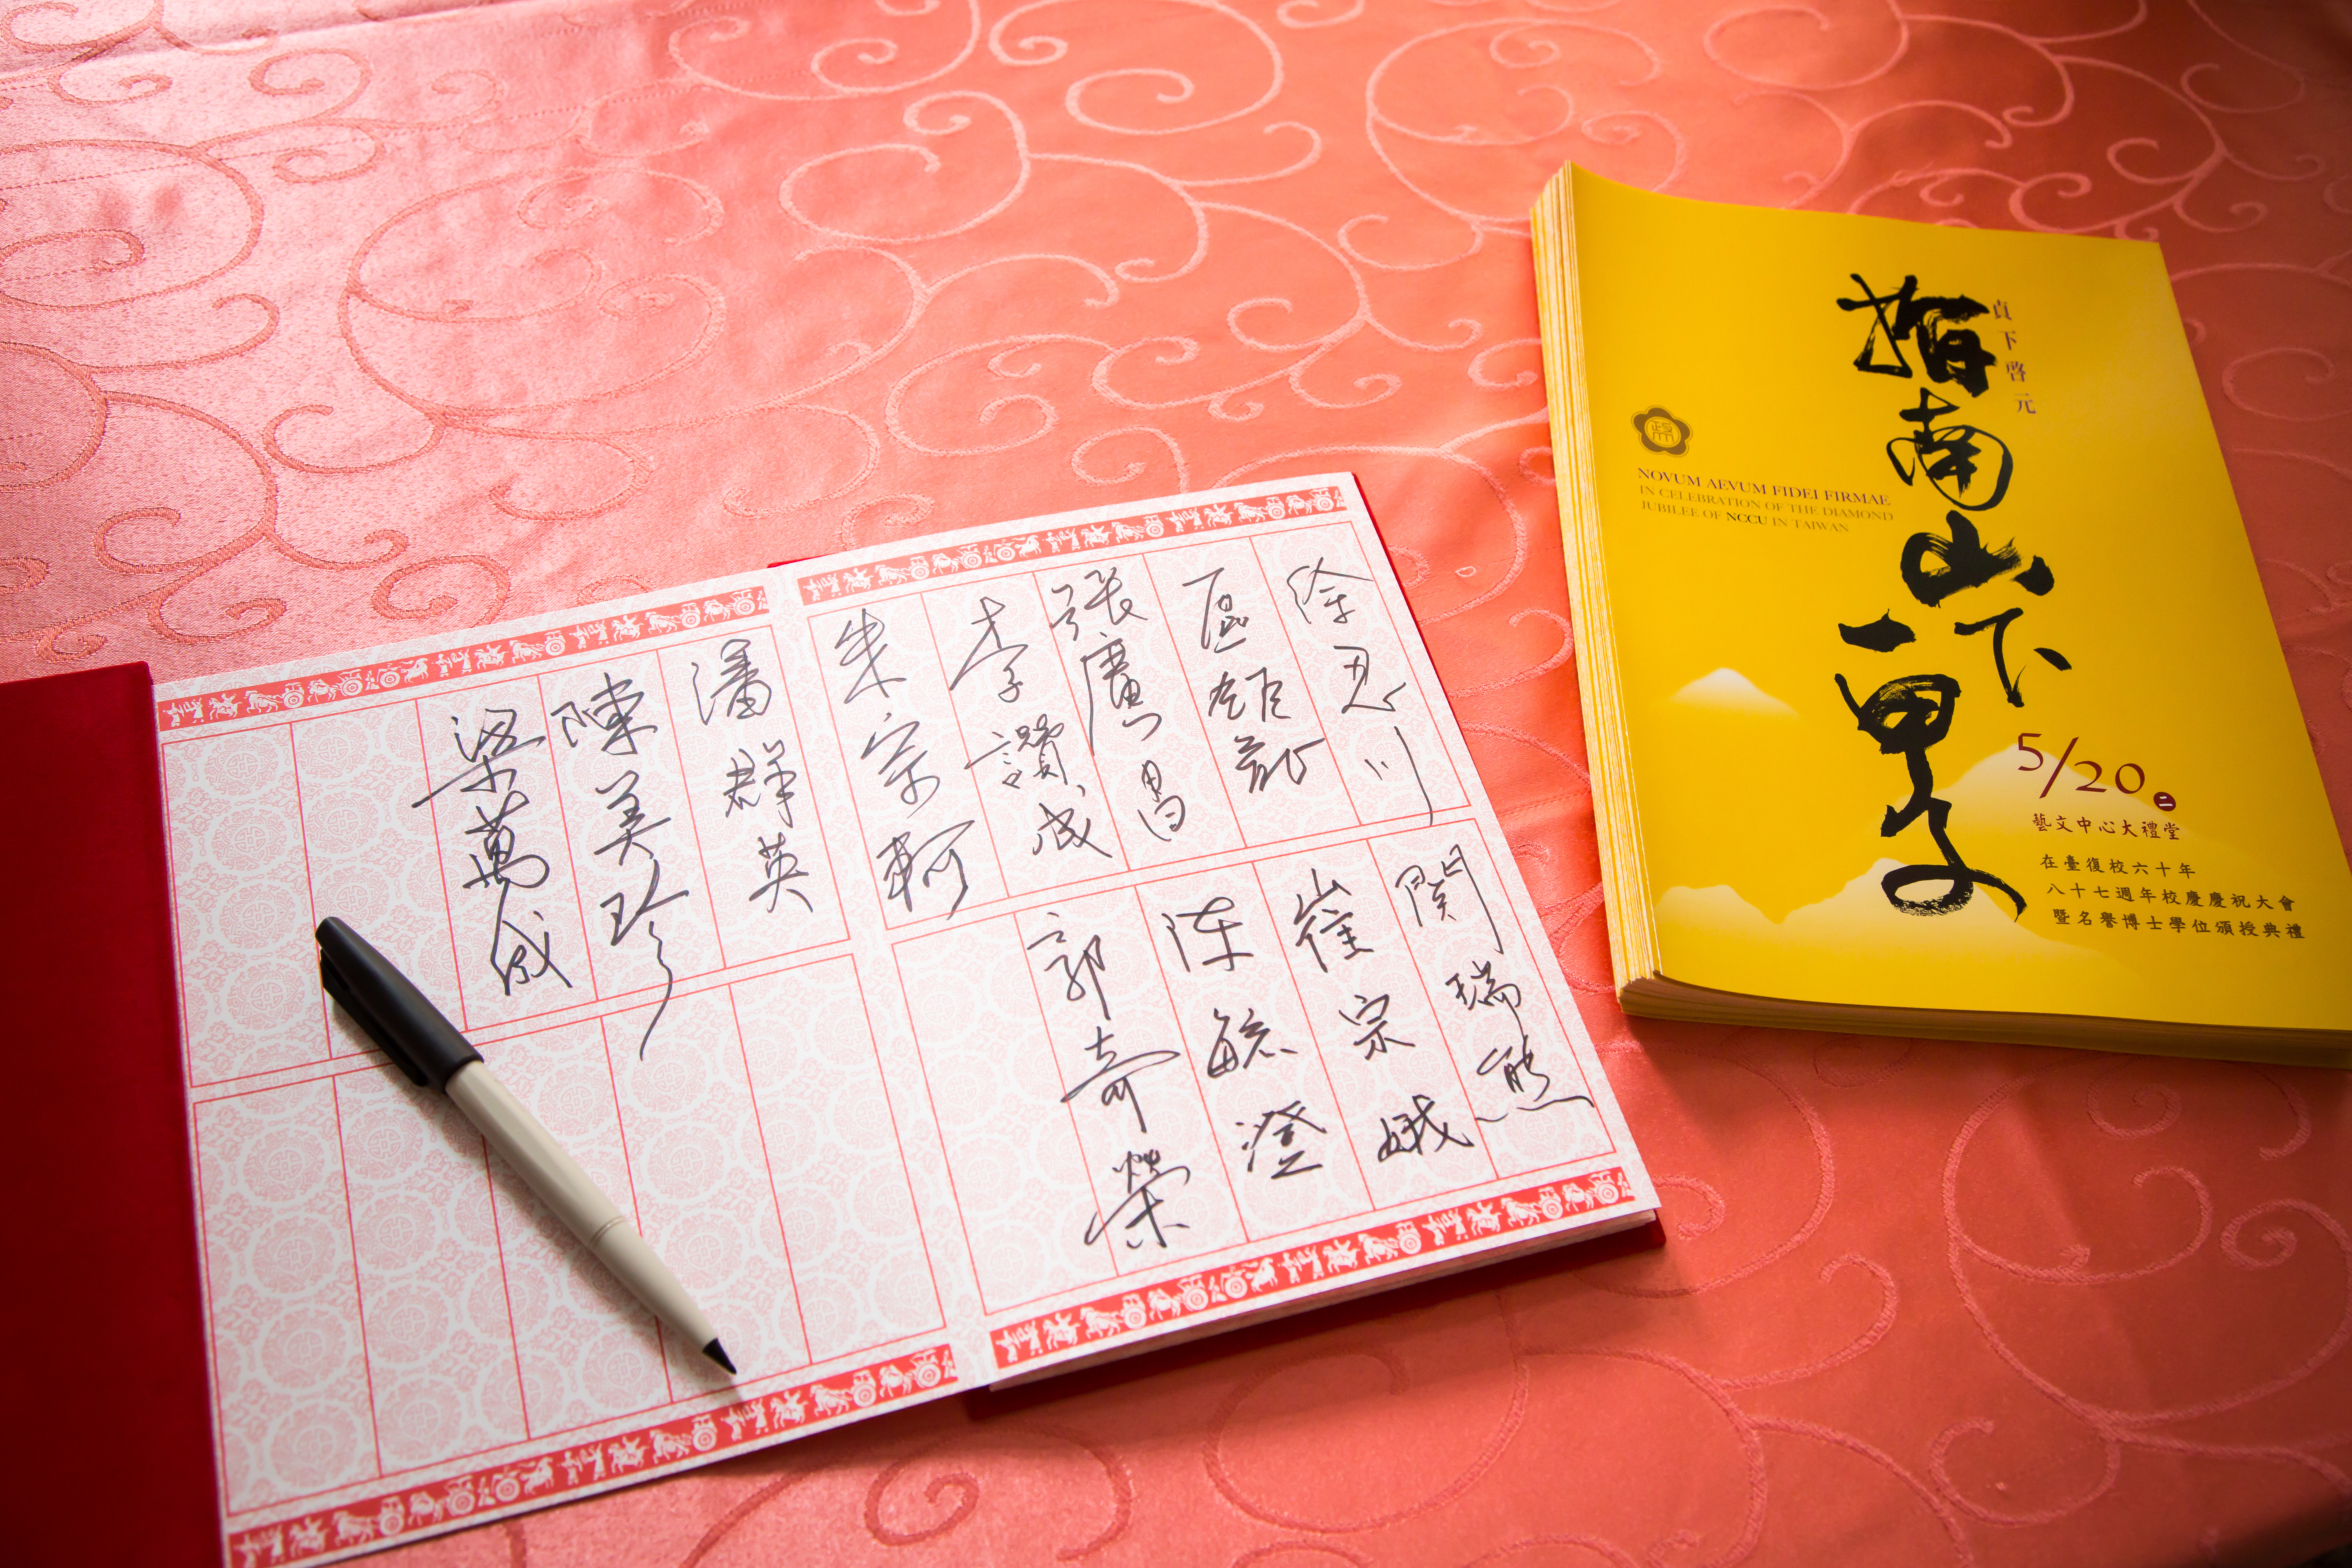 徐忍川
區鉅龍
張廣昌
李讚成
朱宗軻
關瑞熊
崔宗娥
陈毓澄
郭奇榮
潘群英
陳美珍
梁萬成
貞下啓元
指南山下
一甲子
政大
NOVUM AEVUM FIDEI FIRMAE
IN CELEBRATION OF THE DIAMOND
JUBILEE OF NCCU IN TAIWAN
5/20 二
藝文中心大禮堂
在臺復校六十年
八十七週年校慶慶祝大會
暨名譽博士學位頒授典禮